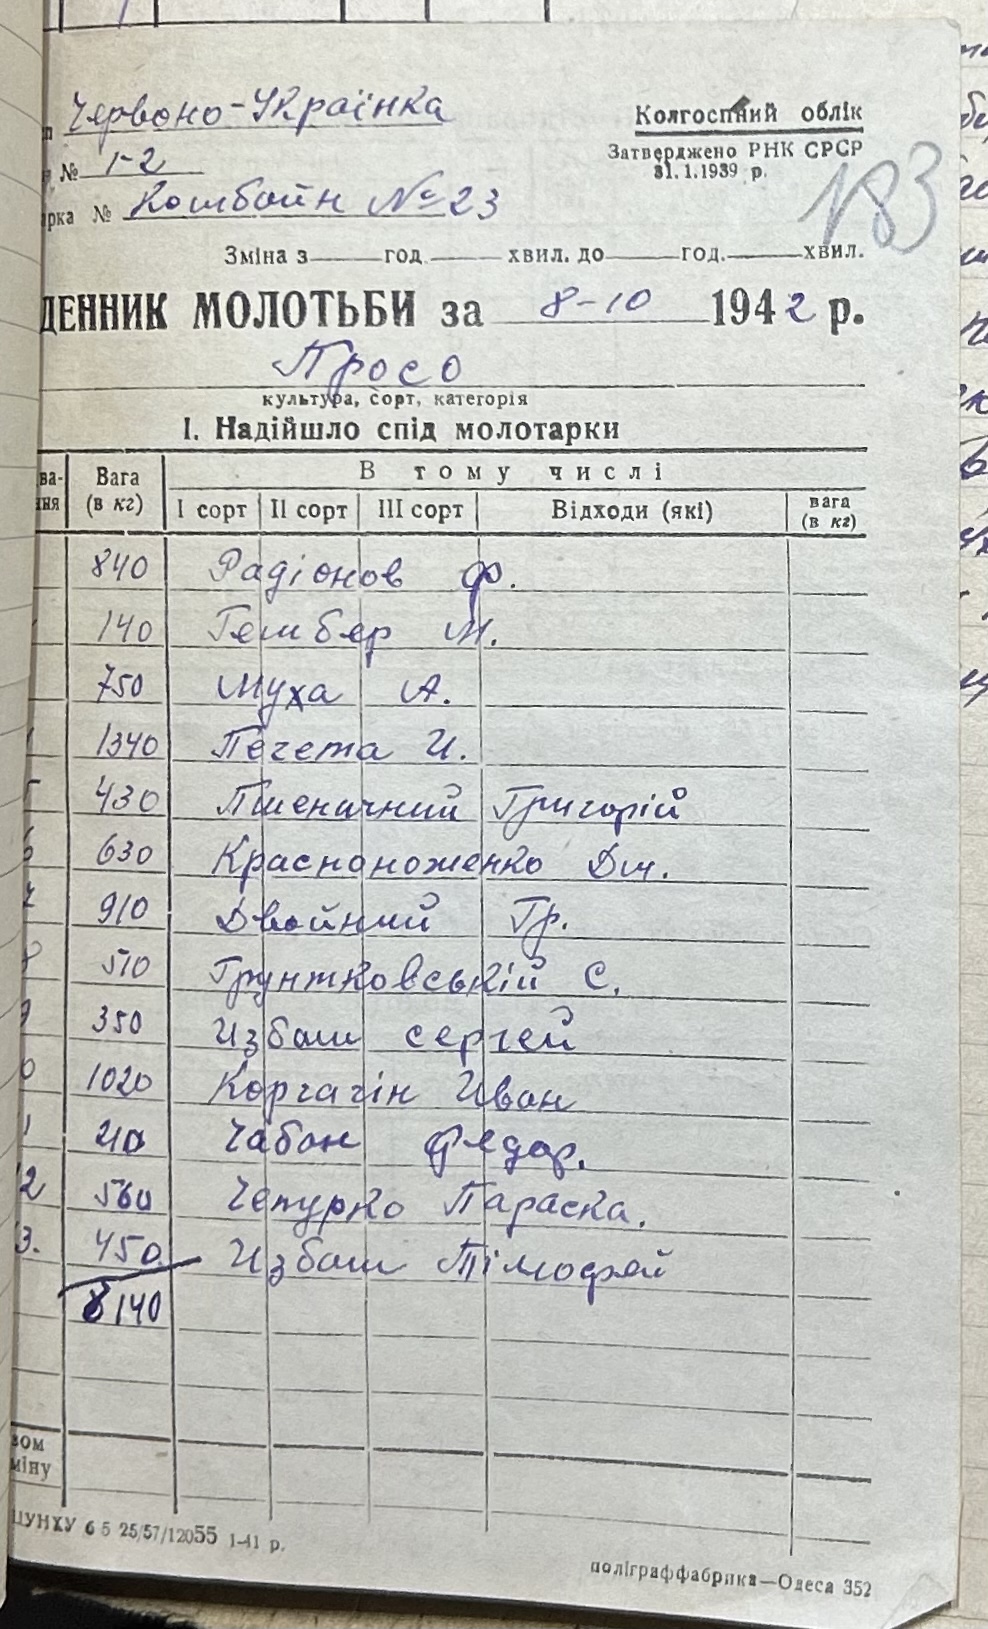 Червоно-Українка
№ 1-2
арка № Комбайн № 23
Колгоспний облік
Затверджено РНК СРСР
31.1.1939 р.
183
Зміна з год. хвил. до год. хвил.
ДЕННИК МОЛОТЬБИ за 8-10 1942 р.
Просо
культура, сорт, категорія
І. Надійшло спід молотарки
ва-ння Вага (в кг) В тому числі
І сорт ІІ сорт ІІІ сорт Відходи (які) вага (в кг)
840 Радіонов Ф.
140 Гембер М.
750 Муха А.
1340 Печета И.
5 430 Пшеничний Григорій
6 630 Красноноженко Дм.
7 910 Двойний Гр.
8 510 Грунтковській С.
9 350 Избаш Сергей
0 1020 Корчагін Иван
1 210 Чабан Федор.
2 560 Чепурко Параска.
3. 450 Избаш Тімофей
8140
зом
міну
ЦУНХУ 6 5 25/57/12055 1-41 р.
поліграффабрика—Одеса 352